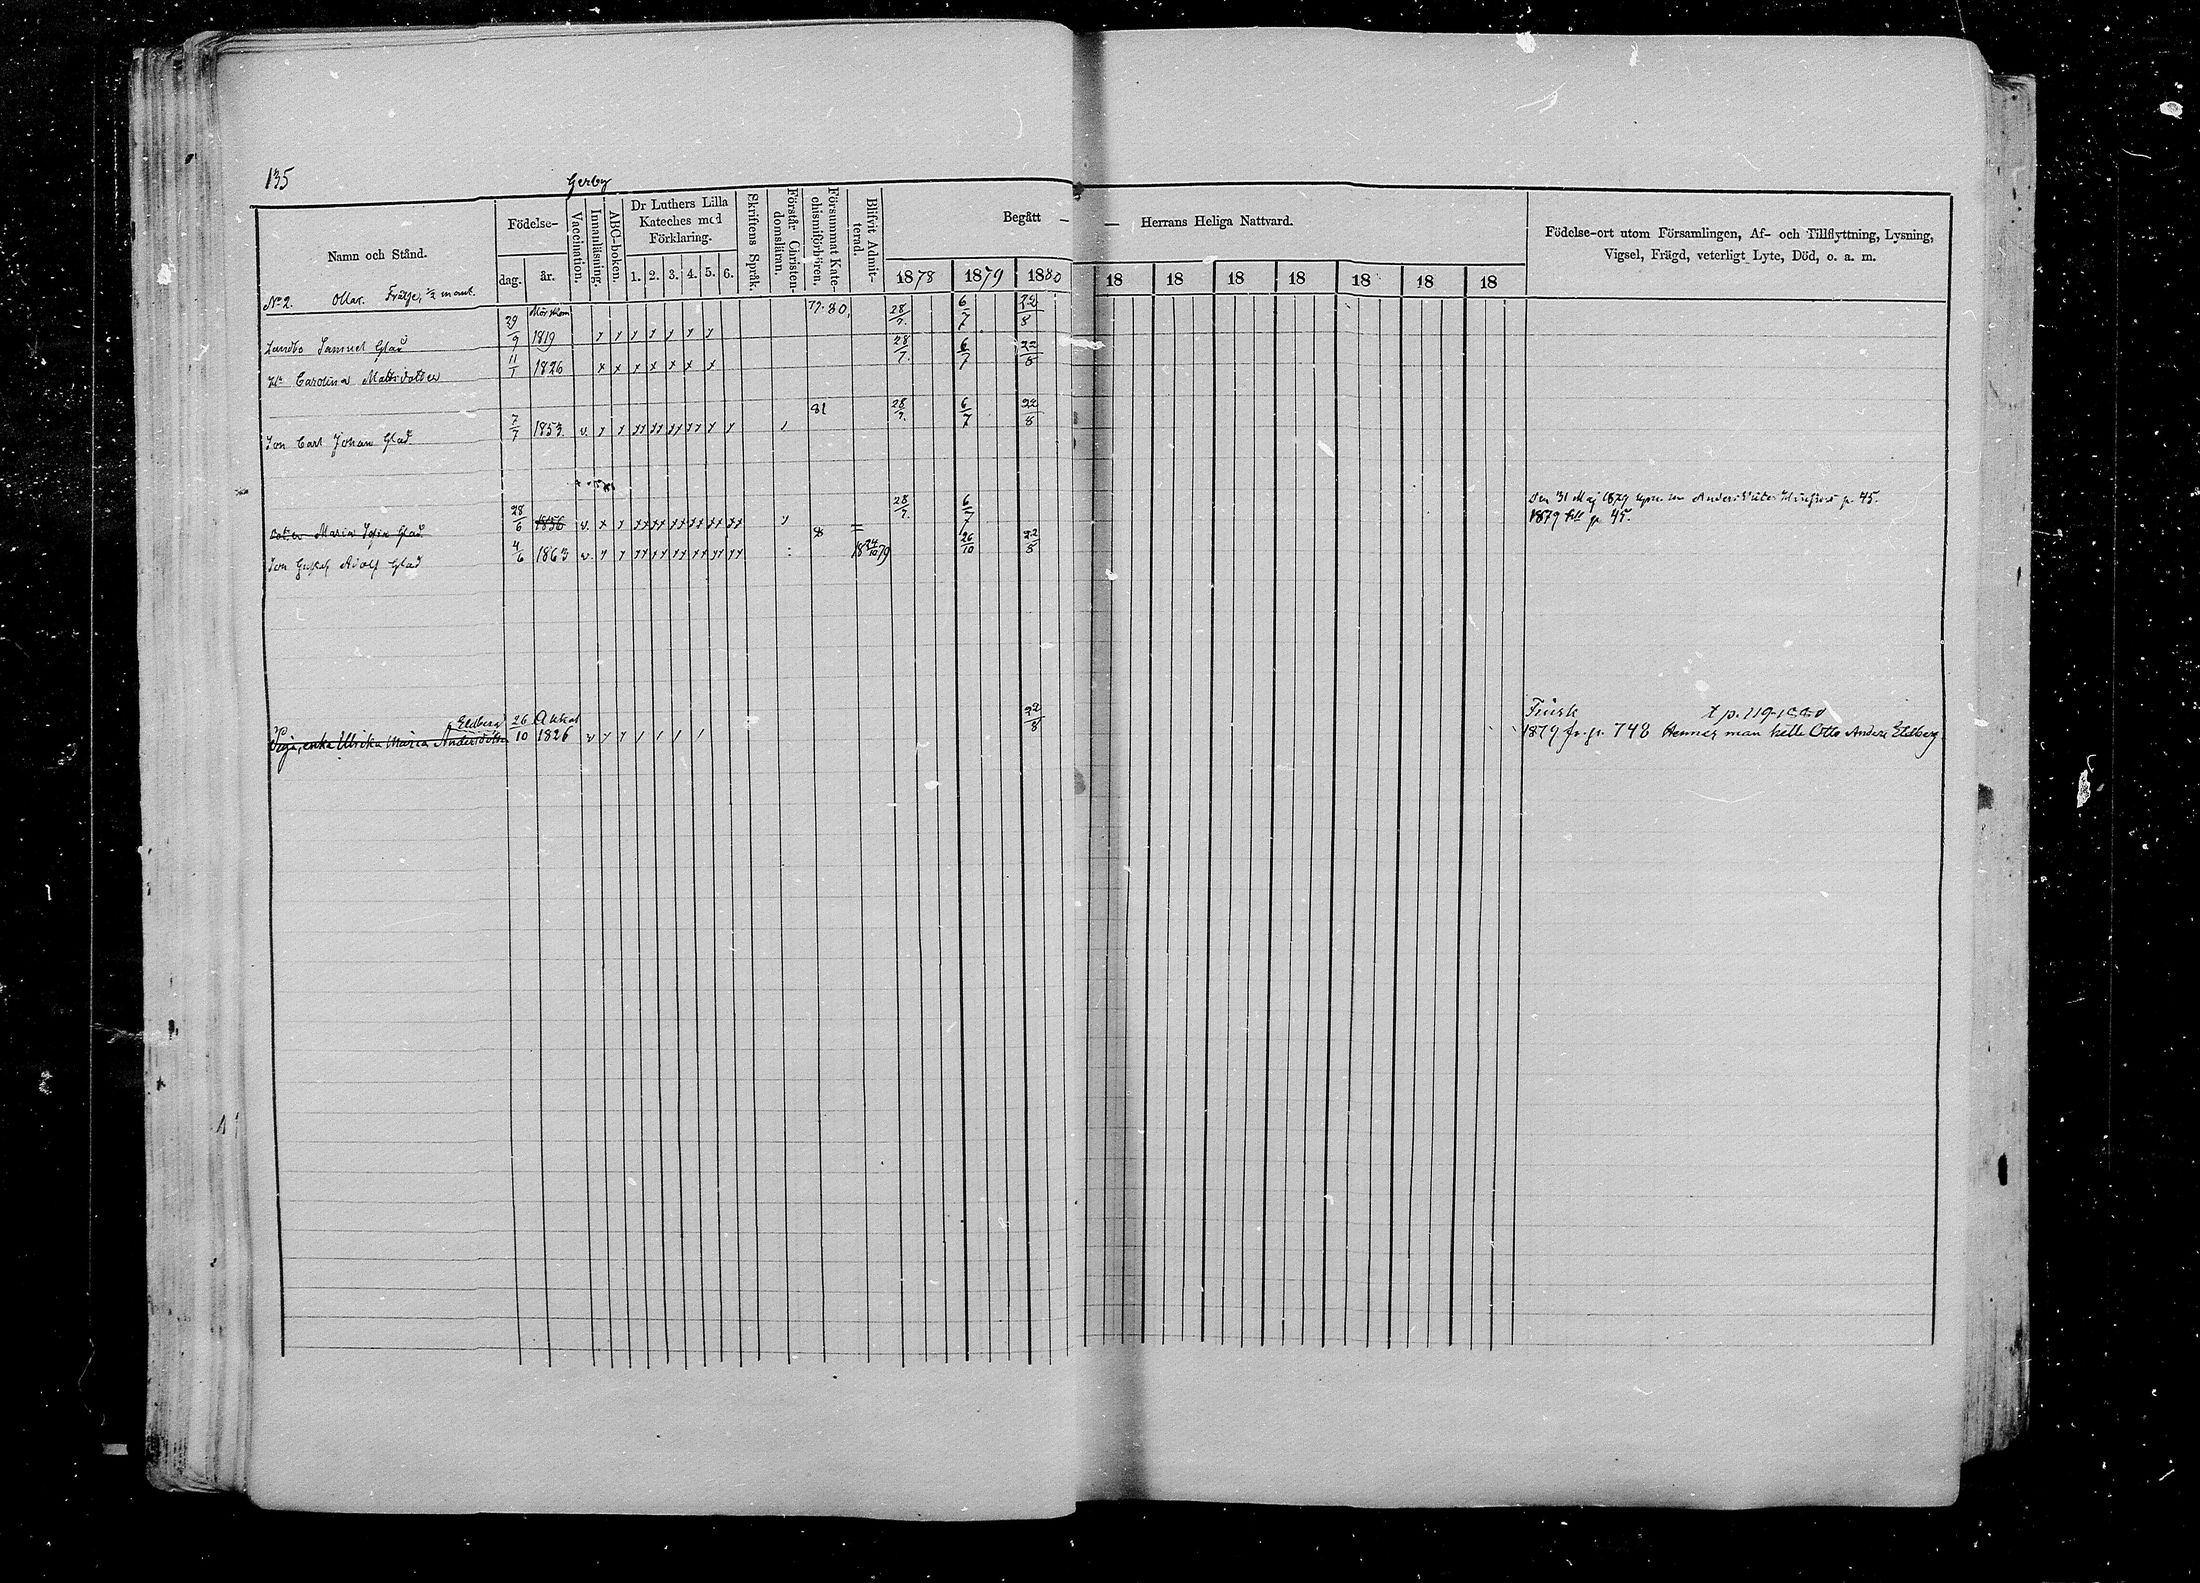 135
Gerby
Namn och Stånd.
Födelse-
dag.
år.
Vaccination.
Innanläsning.
ABC-boken.
Dr Luthers Lilla
Kateches med
Förklaring.
1. 2. 3. 4. 5. 6.
Skriftens Språk.
Förstår Christen-
domsläran.
Försummat Kate-
chismiförhören.
Blifvit Admit-
terad.
Begått — — Herrans Heliga Nattvard.
1878 1879 1880 18 18 18 18 18 18 18
Födelse-ort utom Församlingen, Af- och Tillflyttning, Lysning,
Vigsel, Frägd, veterligt Lyte, Död, o. a. m.
No 2. Ollas. Frälse, 1/2 mant.
Landbo Samuel Glad 29/9 Mörskom 1819 y y y y y y y 79.80, 28/7. 6/7 22/8
H. Carolina Mattsdotter 11/1 1826 x x x x x x x 28/7. 6/7 22/8
Son Carl Johan Glad 7/7 1853. v. 81 28/7. 6/7 22/8
Dotter Maria Sofia Glad. 28/6 1856 v. 28/7. 6/7 Den 31 Maj 1879
1879 till p 45.
Son Gustaf Adolf Glad 4/6 1863 v. 18 24/10 79 26/10 22/8
Eldberg
enka Ulrika Maria Andersdotter 26/10 1826 v 22/8
Finsk
1879 fr. p. 748 Hennes man hette Otto Anders Eldberg